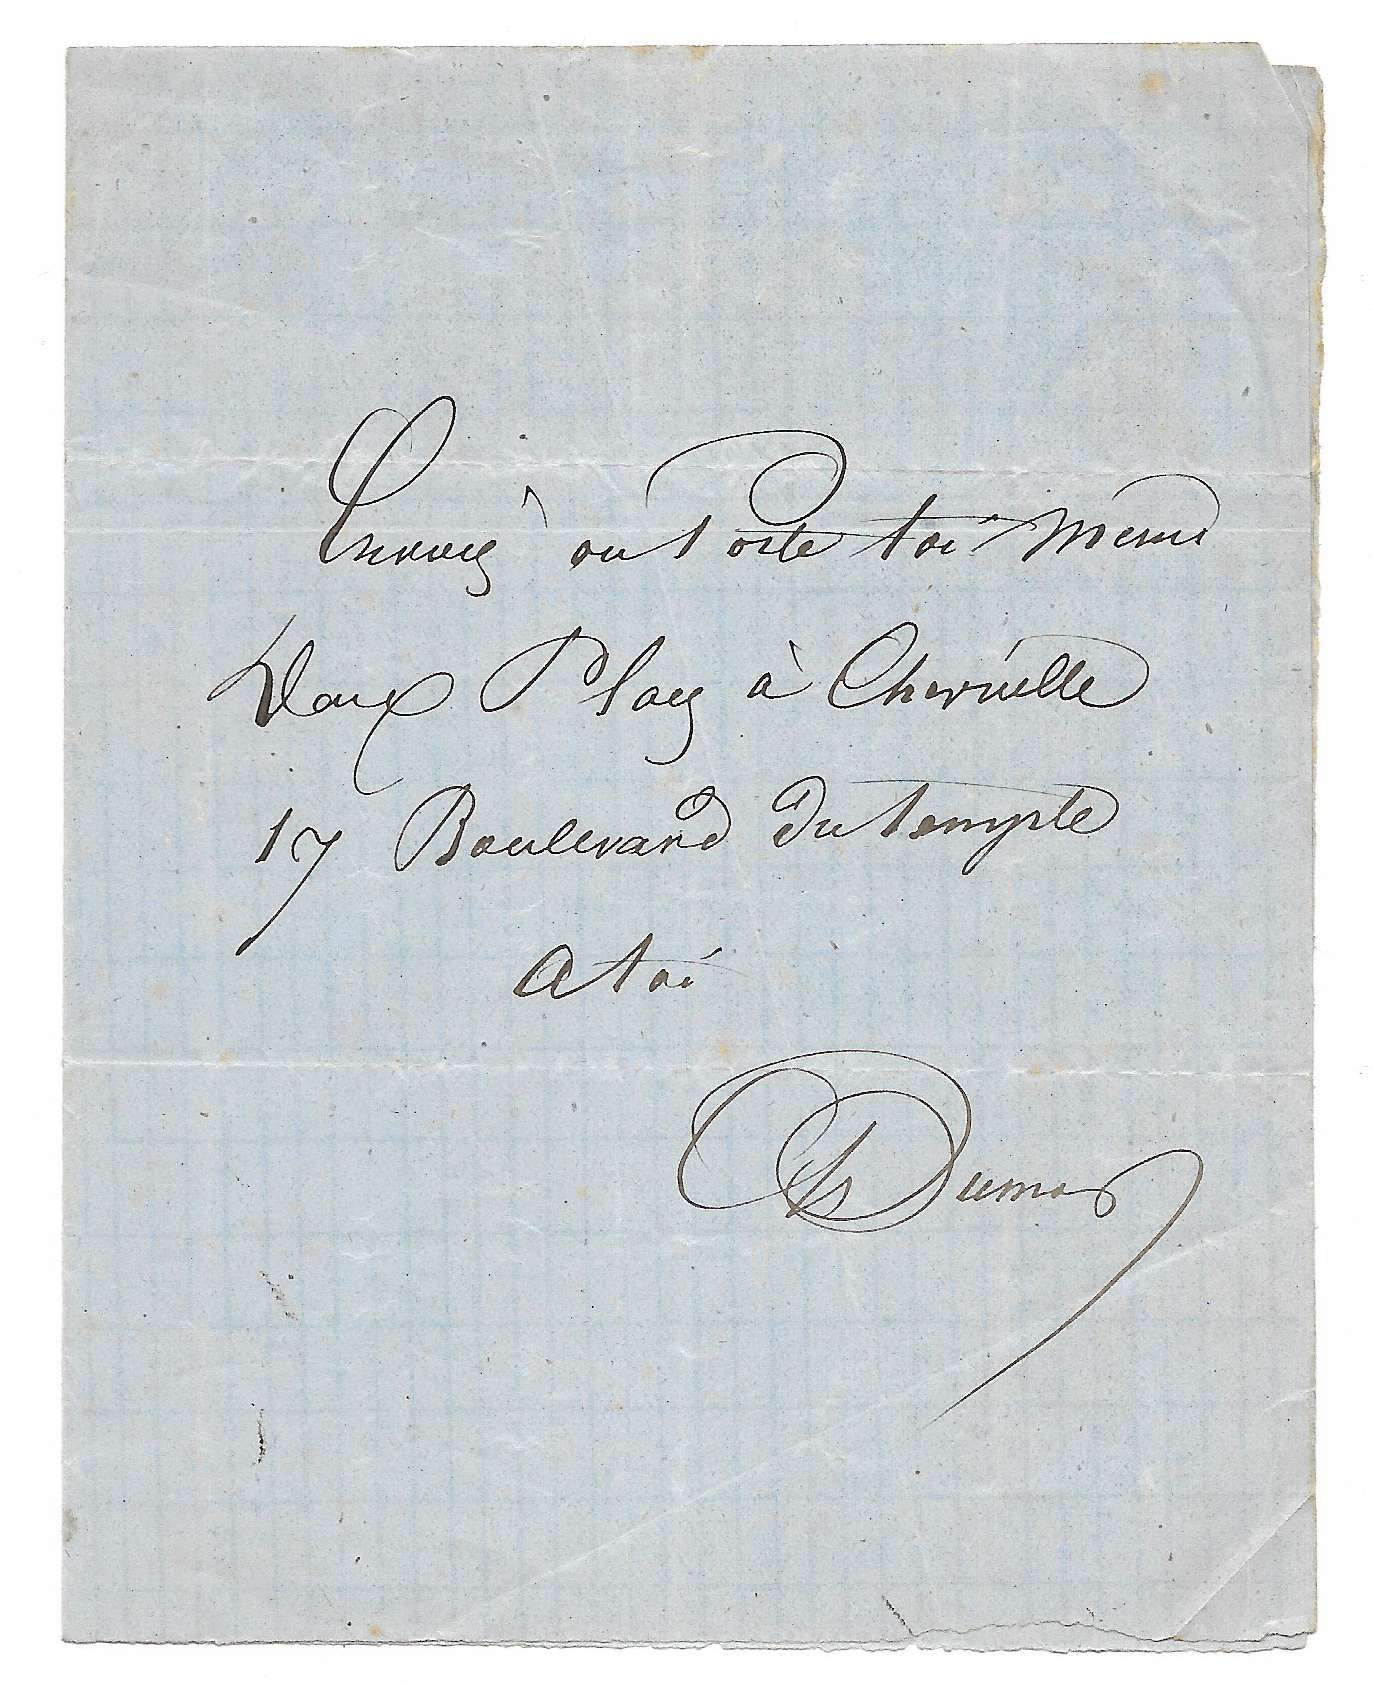 Envoie ou Porte toi même
Deux Places à Cherville
17 Boulevard du temple
a toi
A Dumas